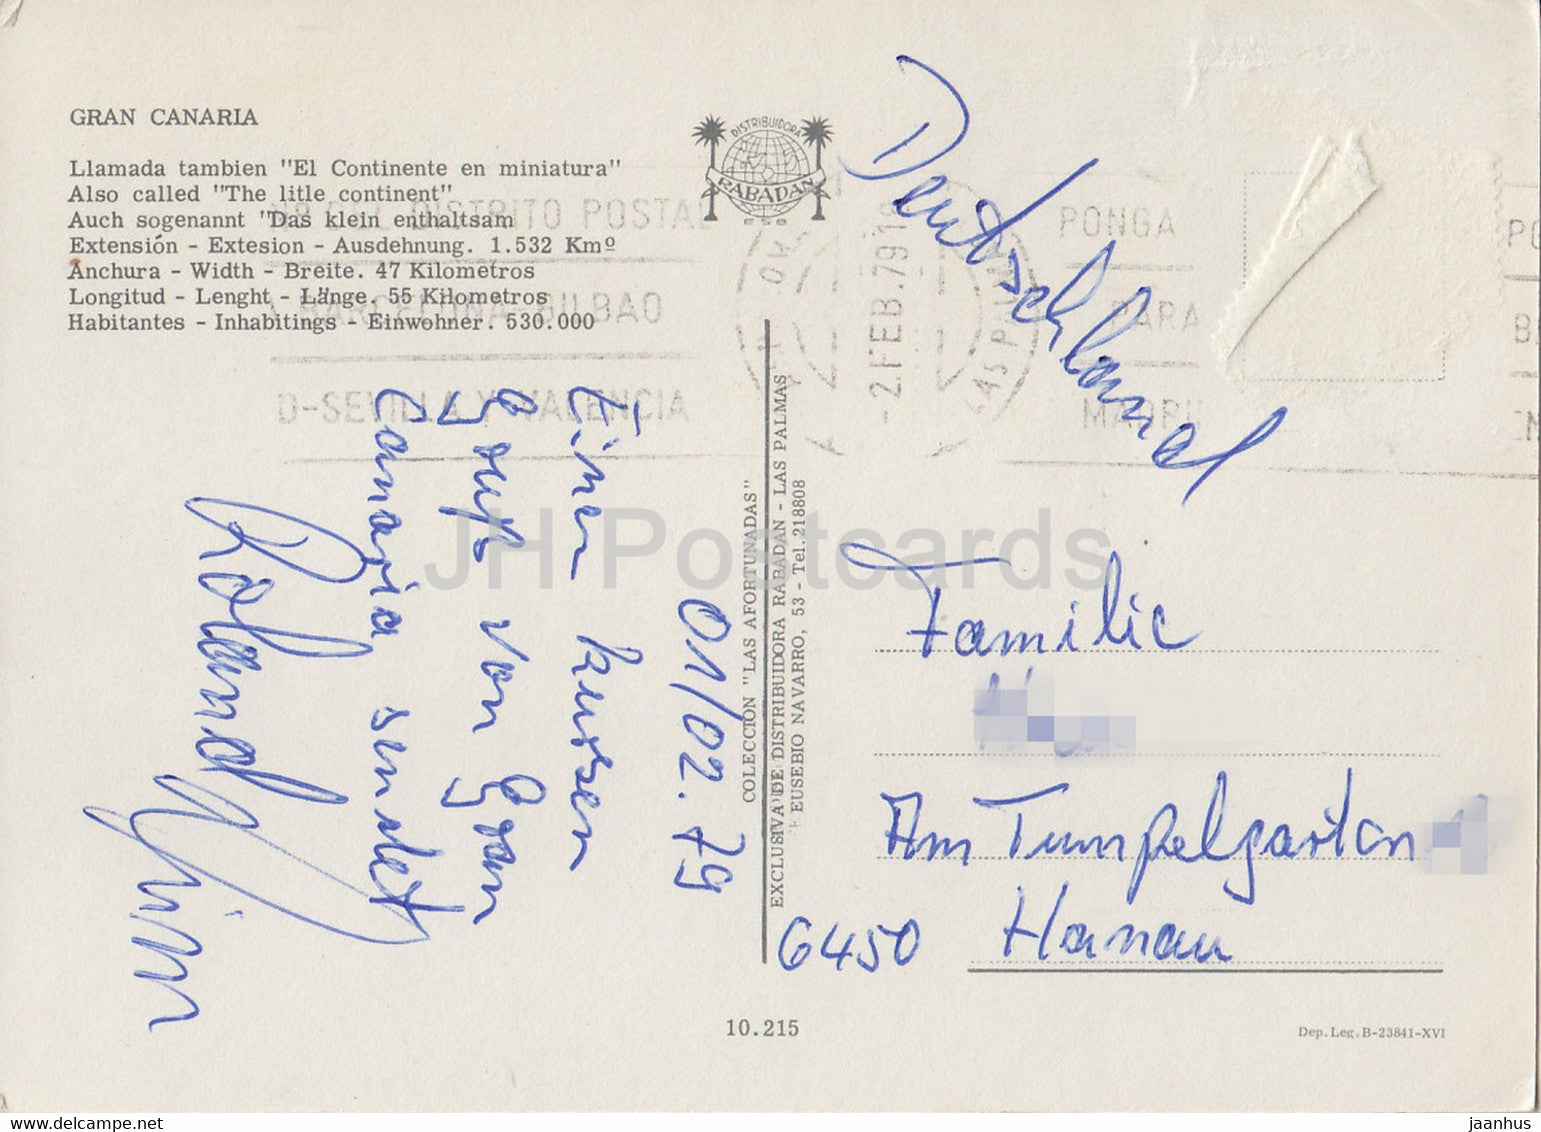 GRAN CANARIA
Llamada tambien "El Continente en miniatura"
Also called "The litle continent"
Auch sogenannt "Das klein enthaltsam
Extensión - Extesion - Ausdehnung. 1.532 Kmº
Anchura - Width - Breite. 47 Kilometros
Longitud - Lenght - Länge. 55 Kilometros
Habitantes - Inhabitings - Einwohner. 530.000
DISTRIBUIDORA
RABADAN
DISTRITO POSTAL
BARCELONA-BILBAO
D-SEVILLA Y VALENCIA
-2 FEB. 79
PONGA
PARA
MADRI
01/02.79
Einen kurzen
Gruß von Gran
Canaria sendet
Roland
COLECCION "LAS AFORTUNADAS"
EXCLUSIVA DE DISTRIBUIDORA RABADAN - LAS PALMAS
EUSEBIO NAVARRO, 53 - Tel. 218808
Deutschland
Familie
Am Tümpelgarten
6450 Hanau
10.215
Dep. Leg. B-23841-XVI
JH Postcards
delcampe.net
jaanhus